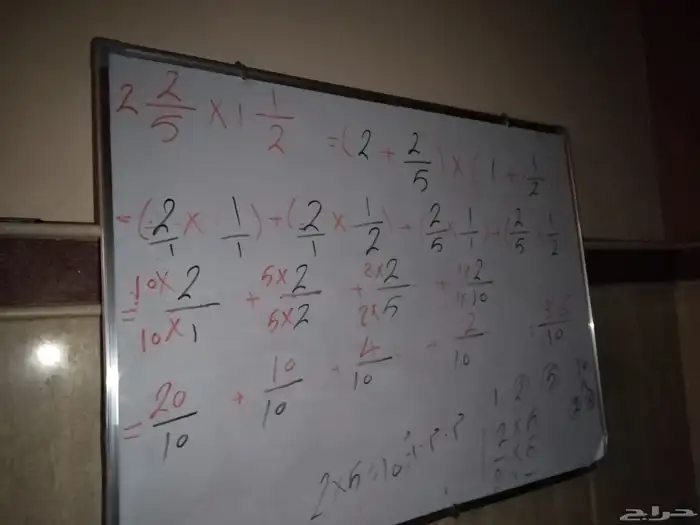 2 2/5 × 1 1/2 = (2 + 2/5) × (1 + 1/2
= (2/1 × 1/1) + (2/1 × 1/2) + (2/5 × 1/1) + (2/5 × 1/2
= 10×2/10×1 + 5×2/5×2 + 2×2/2×5 + 2/10
= 20/10 + 10/10 + 4/10 + 2/10 = 36/10
1 2 5 10
2×5=10
2×5
حراج